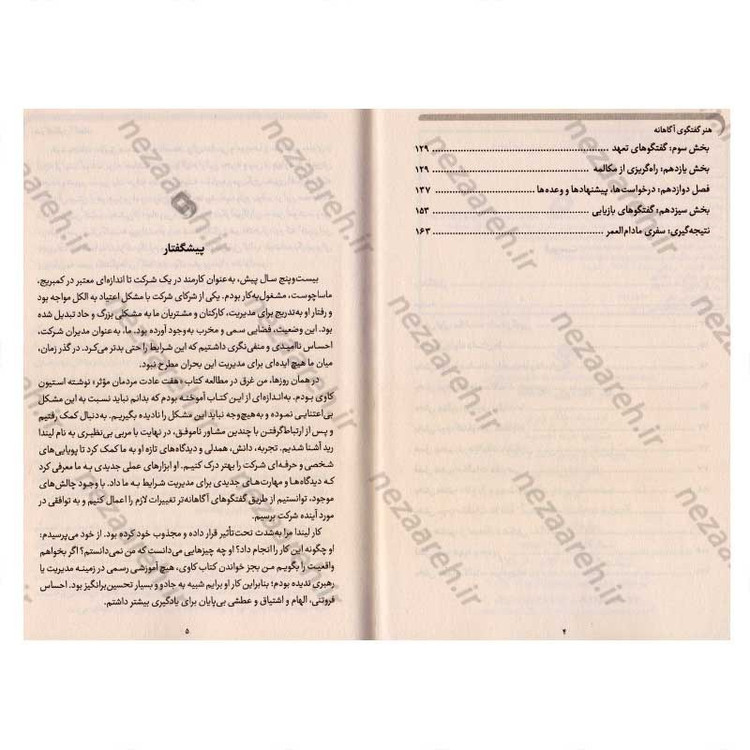 هنر گفتگوی آگاهانه
بخش سوم: گفتگوهای تعهد ........ ۱۲۹
بخش یازدهم: راه‌گریزی از مکالمه ........ ۱۲۹
فصل دوازدهم: درخواست‌ها، پیشنهادها و وعده‌ها ........ ۱۳۷
بخش سیزدهم: گفتگوهای بازیابی ........ ۱۵۳
نتیجه‌گیری: سفری مادام‌العمر ........ ۱۶۳
۴
پیشگفتار
بیست‌وپنج سال پیش، به‌عنوان کارمند در یک شرکت تا اندازه‌ای معتبر در کمبریج،
ماساچوست، مشغول‌به‌کار بودم. یکی از شرکای شرکت با مشکل اعتیاد به الکل مواجه بود
و رفتار او به‌تدریج برای مدیریت، کارکنان و مشتریان ما به مشکلی بزرگ و حاد تبدیل شده
بود. این وضعیت، فضایی سمی و مخرب به‌وجود آورده بود. ما، به‌عنوان مدیران شرکت،
احساس ناامیدی و منفی‌نگری داشتیم که این شرایط را حتی بدتر می‌کرد. در گذر زمان،
میان ما هیچ ایده‌ای برای مدیریت این بحران مطرح نبود.
در همان روزها، من غرق در مطالعه کتاب «هفت عادت مردمان مؤثر» نوشته استیون
کاوی بودم. به‌اندازه‌ای از این کتاب آموخته بودم که بدانم نباید نسبت به این مشکل
بی‌اعتنایی نموده و به‌هیچ‌وجه نباید این مشکل را نادیده بگیریم. به‌دنبال کمک رفتیم
و پس از ارتباط‌گرفتن با چندین مشاور ناموفق، در نهایت با مربی بی‌نظیری به نام لیندا
رید آشنا شدیم. تجربه، دانش، همدلی و دیدگاه‌های تازه او به ما کمک کرد تا پویایی‌های
شخصی و حرفه‌ای شرکت را بهتر درک کنیم. او ابزارهای عملی جدیدی به ما معرفی کرد
که دیدگاه‌ها و مهارت‌های جدیدی برای مدیریت شرایط به ما داد. با وجود چالش‌های
موجود، توانستیم از طریق گفتگوهای آگاهانه‌تر تغییرات لازم را اعمال کنیم و به توافقی در
مورد آینده شرکت برسیم.
کار لیندا مرا به‌شدت تحت‌تأثیر قرار داده و مجذوب خود کرده بود. از خود می‌پرسیدم:
او چگونه این کار را انجام داد؟ او چه چیزهایی می‌دانست که من نمی‌دانستم؟ اگر بخواهم
واقعیت را بگویم من بجز خواندن کتاب کاوی، هیچ آموزشی رسمی در زمینه مدیریت یا
رهبری ندیده بودم؛ بنابراین کار او برایم شبیه به جادو و بسیار تحسین‌برانگیز بود. احساس
فروتنی، الهام و اشتیاق و عطشی بی‌پایان برای یادگیری بیشتر داشتم.
۵
nezaareh.ir
nezaareh.ir
nezaareh.ir
nezaareh.ir
nezaareh.ir
nezaareh.ir
nezaareh.ir
nezaareh.ir
nezaareh.ir